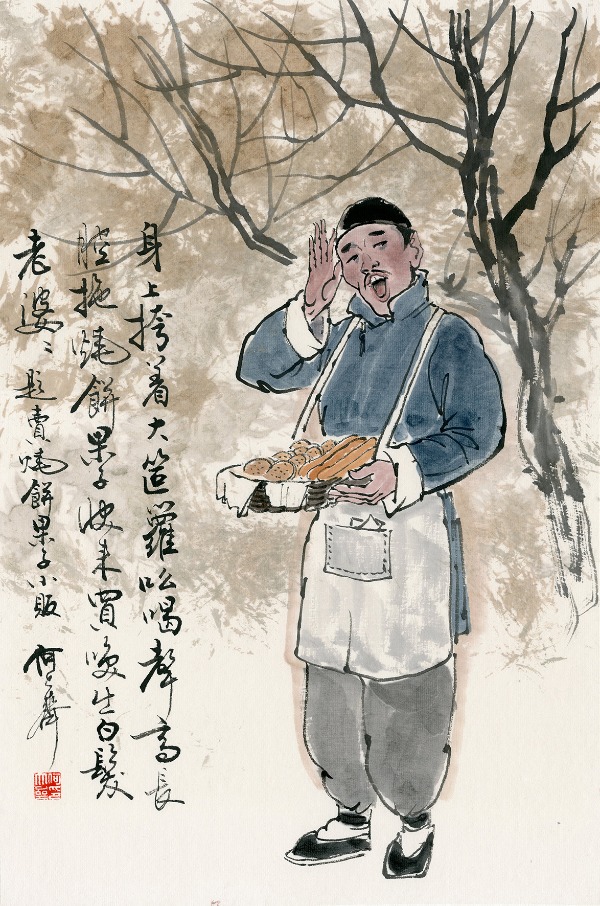 身上挎着大笸羅吆喝聲高長
腔拖燒餅果子快来買喚出白髮
老婆〻題賣燒餅果子小販 何大齊